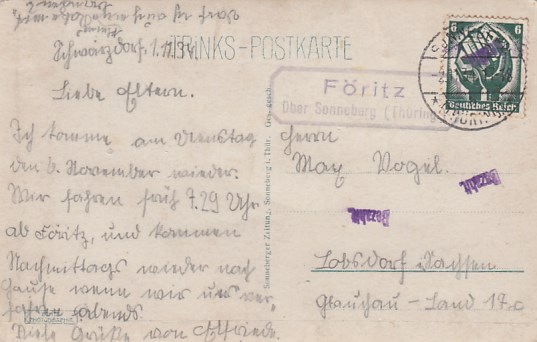 Schwärzdorf, 1.11.34.
TRINKS-POSTKARTE
Liebe Eltern.
Ich komme am Dienstag
den 6. November wieder.
Wir fahren früh 7.29 Uhr
ab Föritz, und kommen
Nachmittags wieder nach
Hause wenn wir uns ver-
fahren abends.
Viele Grüße von Elfriede.
Sonneberger Zeitung, Sonneberg i. Thür. Ges. gesch.
6 6
Deutsches Reich
Föritz
über Sonneberg (Thüring
Herrn
Max Vogel.
Bezahlt.
Bezahlt.
Lobsdorf Sachsen
Glauchau - Land 17c